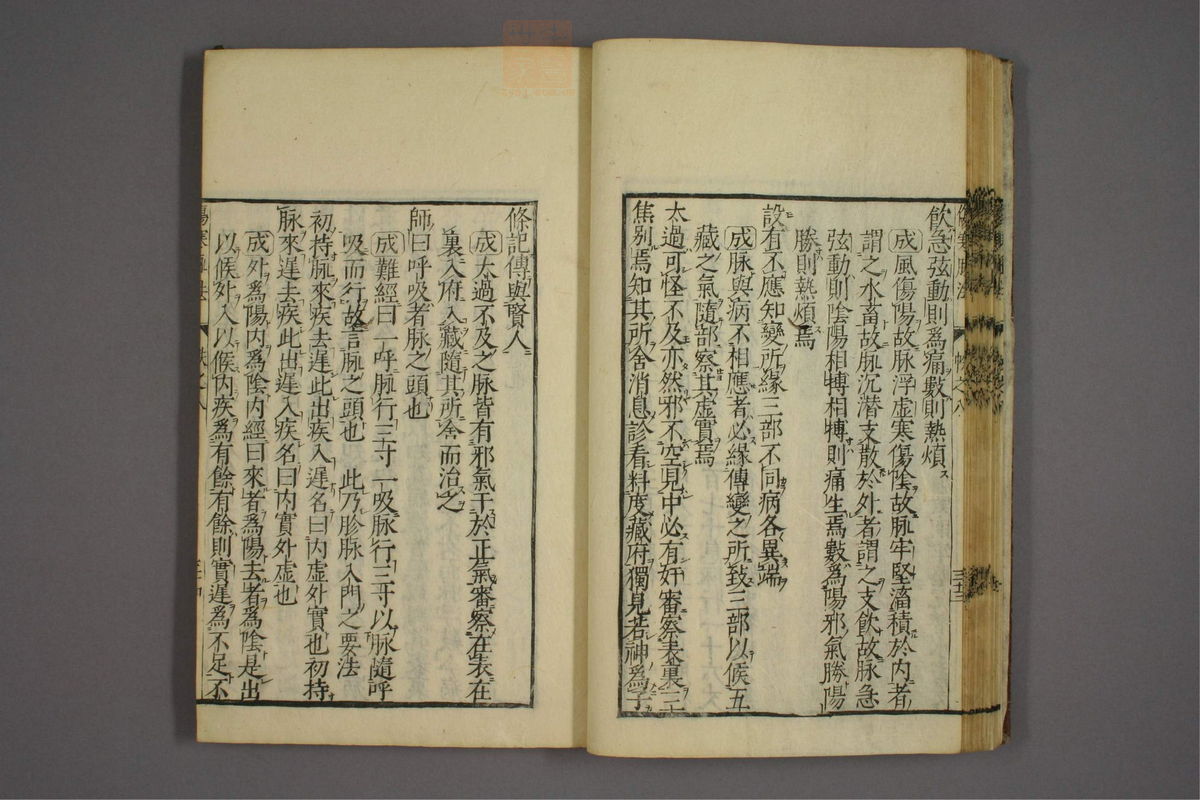 飲急弦動則爲痛數則熱煩
成風傷陽故脉浮虚寒傷陰故脉牢堅滀積於內者
謂之水畜故脉沉潜支散於外者謂之支飲故脉急
弦動則陰陽相搏相搏則痛生焉數爲陽邪氣勝陽
勝則熱煩焉
設有不應知變所緣三部不同病各異端
成脉與病不相應者必緣傳變之所致三部以候五
藏之氣隨部察其虚實焉
太過可怪不及亦然邪不空見中必有奸審察表裏三
焦别焉知其所舍消息診看料度藏府獨見若神爲子
條記傳與賢人
成太過不及之脉皆有邪氣干於正氣審察在表在
裏入府入藏隨其所舍而治之
師曰呼吸者脉之頭也
成難經曰一呼脉行三寸一吸脉行三寸以脉隨呼
吸而行故言脉之頭也 此乃胗脉入門之要法
初持脉來疾去遲此出疾入遲名曰內虚外實也初持
脉來遲去疾此出遲入疾名曰內實外虚也
成外爲陽內爲陰內經曰來者爲陽去者爲陰是出
以候外入以候內疾爲有餘有餘則實遲爲不足不